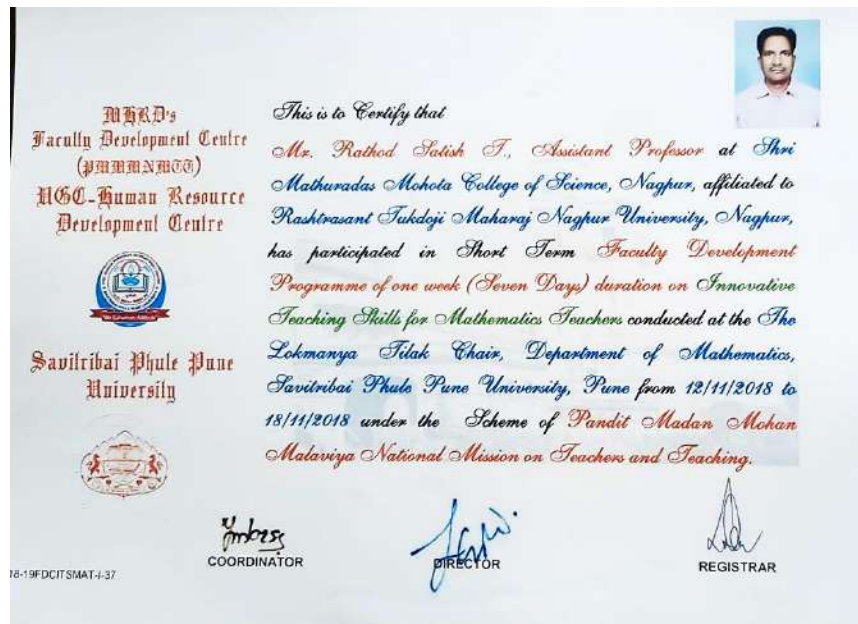 MHRD's
Faculty Development Centre
(PMMMNMTT)
UGC-Human Resource
Development Centre
Savitribai Phule Pune
University
This is to Certify that
Mr. Rathod Satish T., Assistant Professor at Shri
Mathuradas Mohota College of Science, Nagpur, affiliated to
Rashtrasant Tukdoji Maharaj Nagpur University, Nagpur,
has participated in Short Term Faculty Development
Programme of one week (Seven Days) duration on Innovative
Teaching Skills for Mathematics Teachers conducted at the The
Lokmanya Tilak Chair, Department of Mathematics,
Savitribai Phule Pune University, Pune from 12/11/2018 to
18/11/2018 under the Scheme of Pandit Madan Mohan
Malaviya National Mission on Teachers and Teaching.
COORDINATOR
DIRECTOR
REGISTRAR
18-19FDCITSMAT-I-37